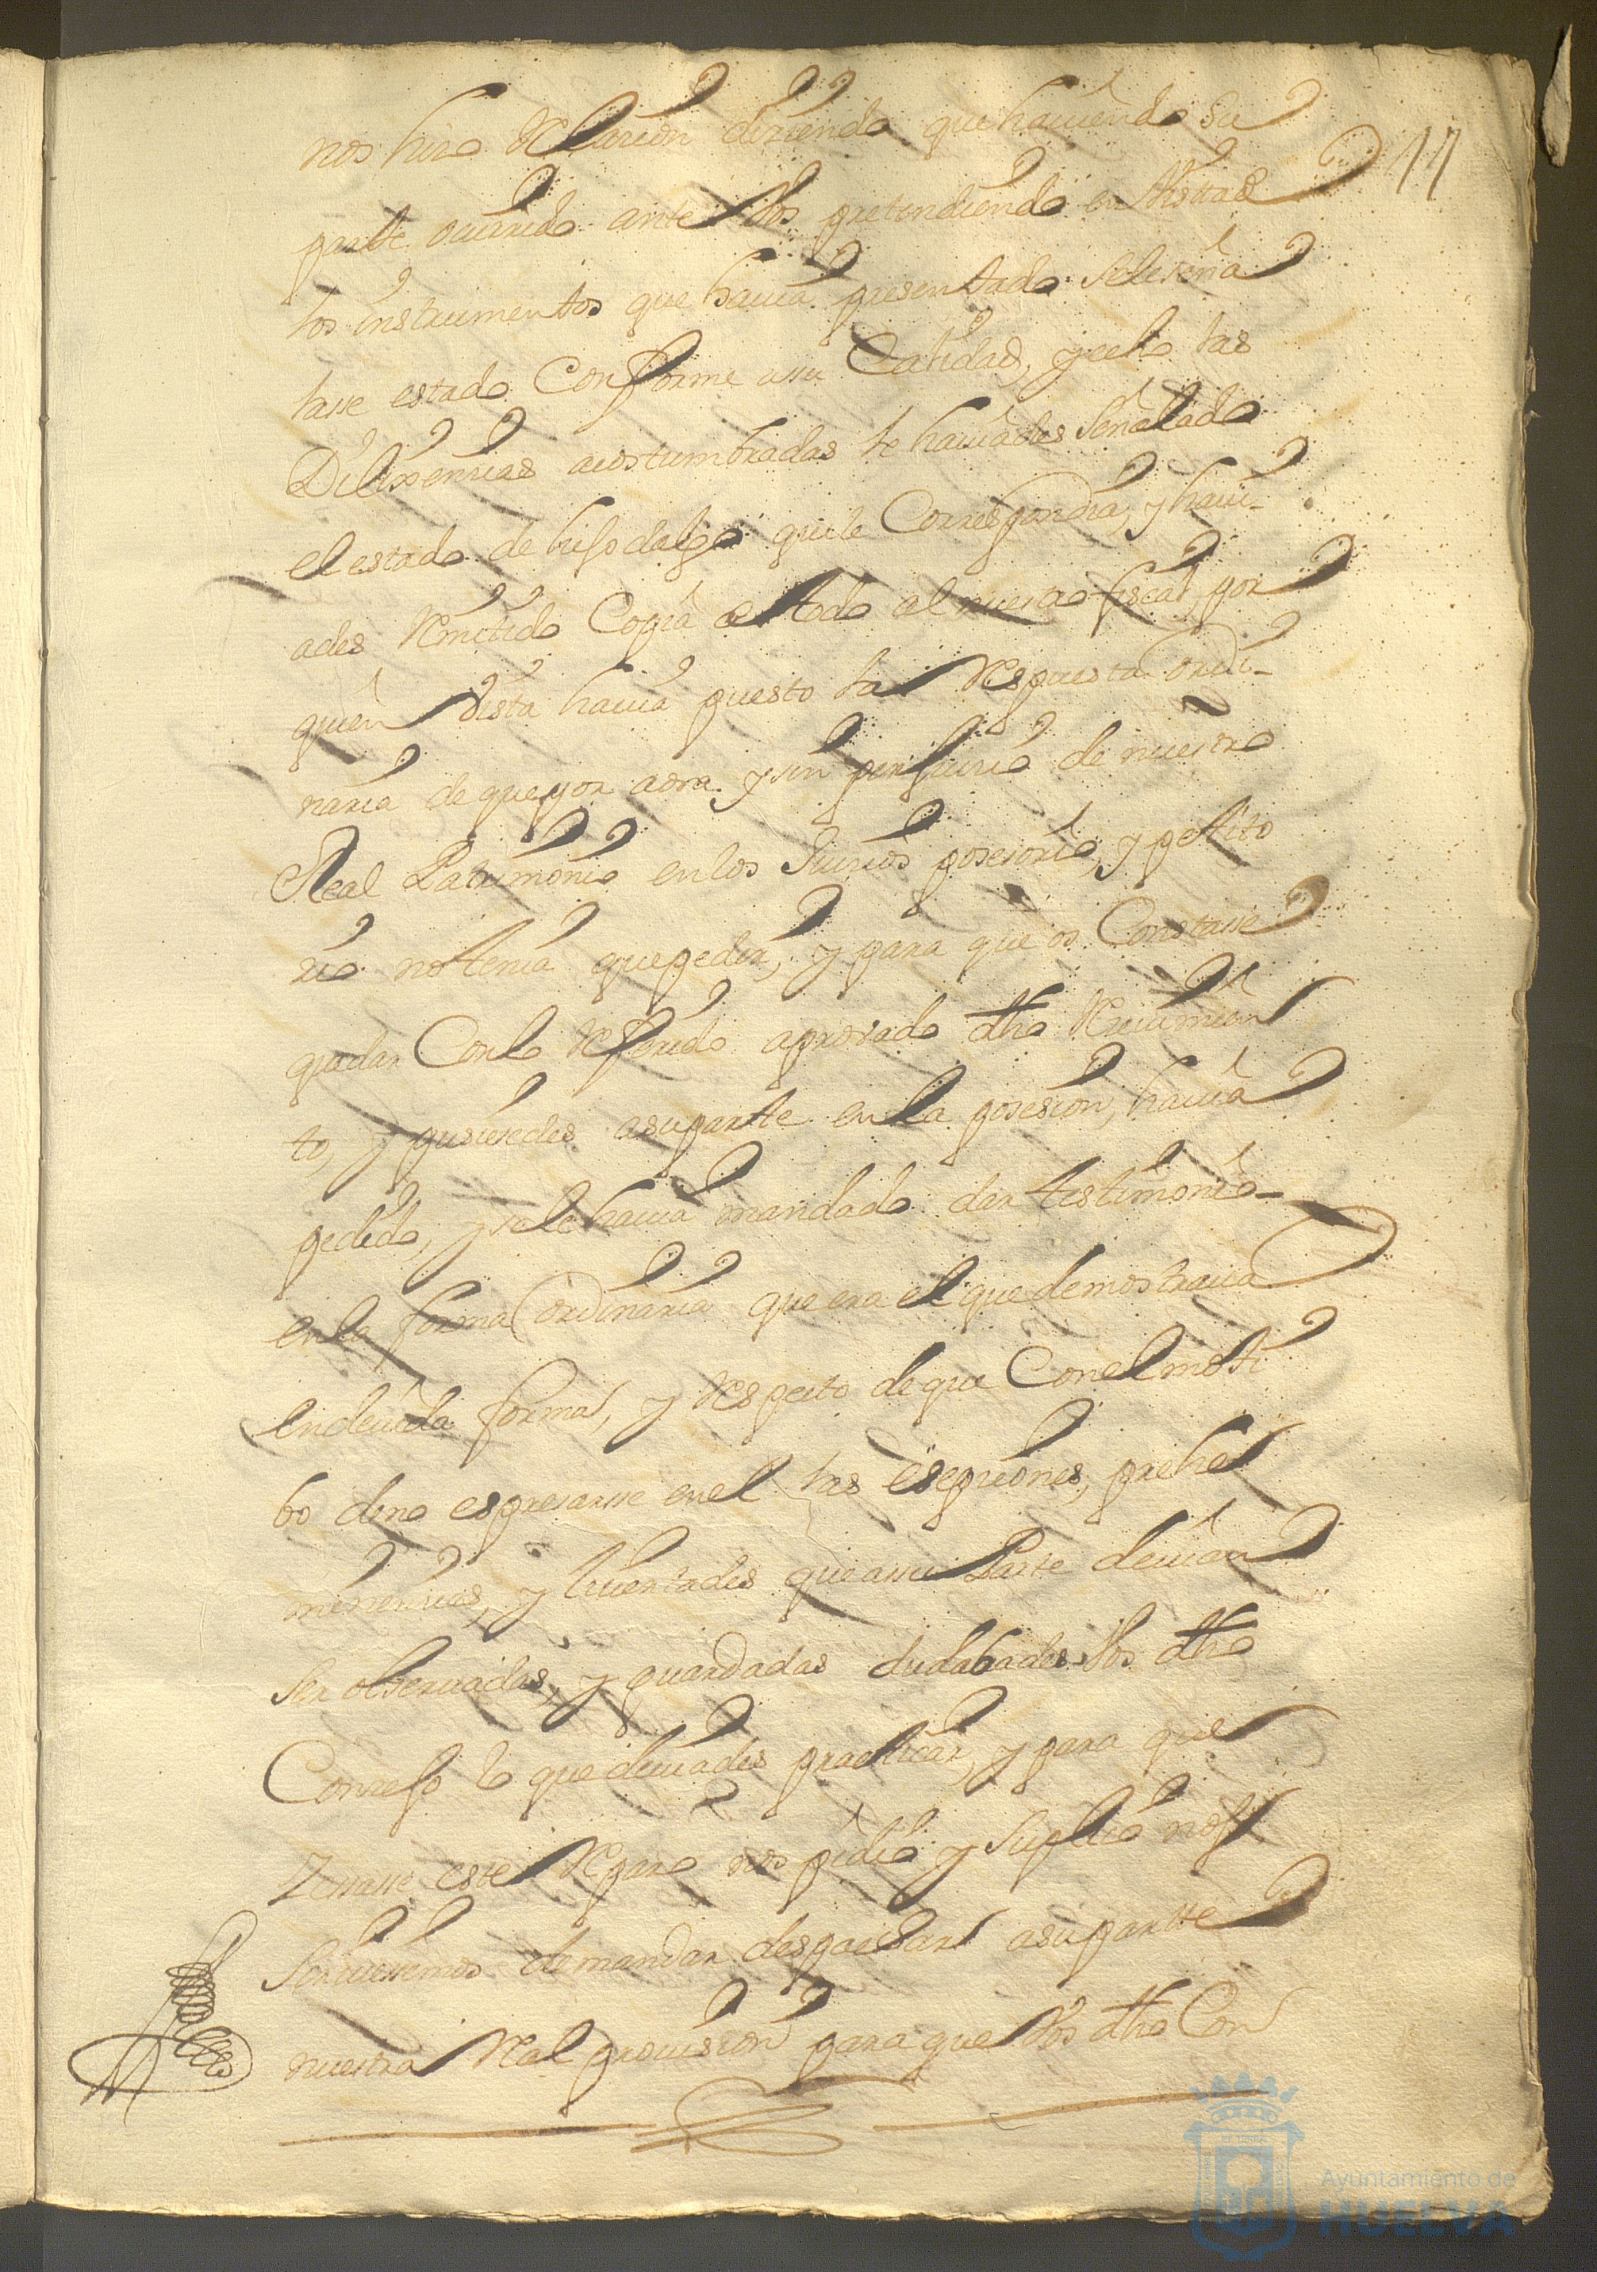 17
nos hizo Relazion diziendo que haviendo su
parte ocurrido ante Vos pretendiendo en Vista de
los instrumentos que havia presentado sele seña
lasse estado Conforme assu Calidad, y echo las
Dilixencias acostumbradas le haviades Señalado
el estado de hijodalgo que le Correspondia, y havi-
ades Remitido Copia de todo al nuestro fiscal por
quien Vista havia puesto la Respuesta ordi-
naria de que por aora y sin perjuicio de nuestro
Real Patrimonio en los Juicios posesorio, y petito
rio no tenia que pedir, y para que os Constasse
quedar Con lo Referido aprovado dho Recivimien
to, y pusiesedes asuparte en la posesion, havia
pedido, y sele havia mandado dar testimonio-
en la forma ordinaria que era el que demostrava
en devida forma, y Respecto de que Con el moti
bo de no espresarse en el las esepciones, prehe
minencias, y livertades que assu Parte devian
ser observadas, y guardadas dudabades Vos dho
Conzejo lo que deviades practicar, y para que
Zessasse este Reparo nos pidio y Suplico nos
sirviessemos de mandar despachar asuparte
nuestra Real provision para que Vos dho Con
Ayuntamiento de
HUELVA